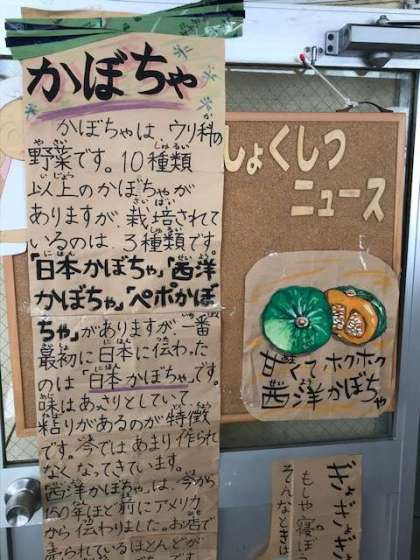 かぼちゃ
かぼちゃは、ウリ科の
野菜です。10種類
以上のかぼちゃが
ありますが、栽培されて
いるのは、3種類です。
「日本かぼちゃ」「西洋
かぼちゃ」「ペポかぼ
ちゃ」がありますが、一番
最初に日本に伝わった
のは「日本かぼちゃ」です。
味はあっさりとしていて、
粘りがあるのが特徴
です。今ではあまり作られ
なくなってきています。
西洋かぼちゃは、今から
150年ほど前にアメリカ
から伝わりました。お店で
売られているほとんどが
しょくしつ
ニュース
甘くてホクホク
西洋かぼちゃ
ぎょぎょぎ
もしや寝ぼ
そんなときは